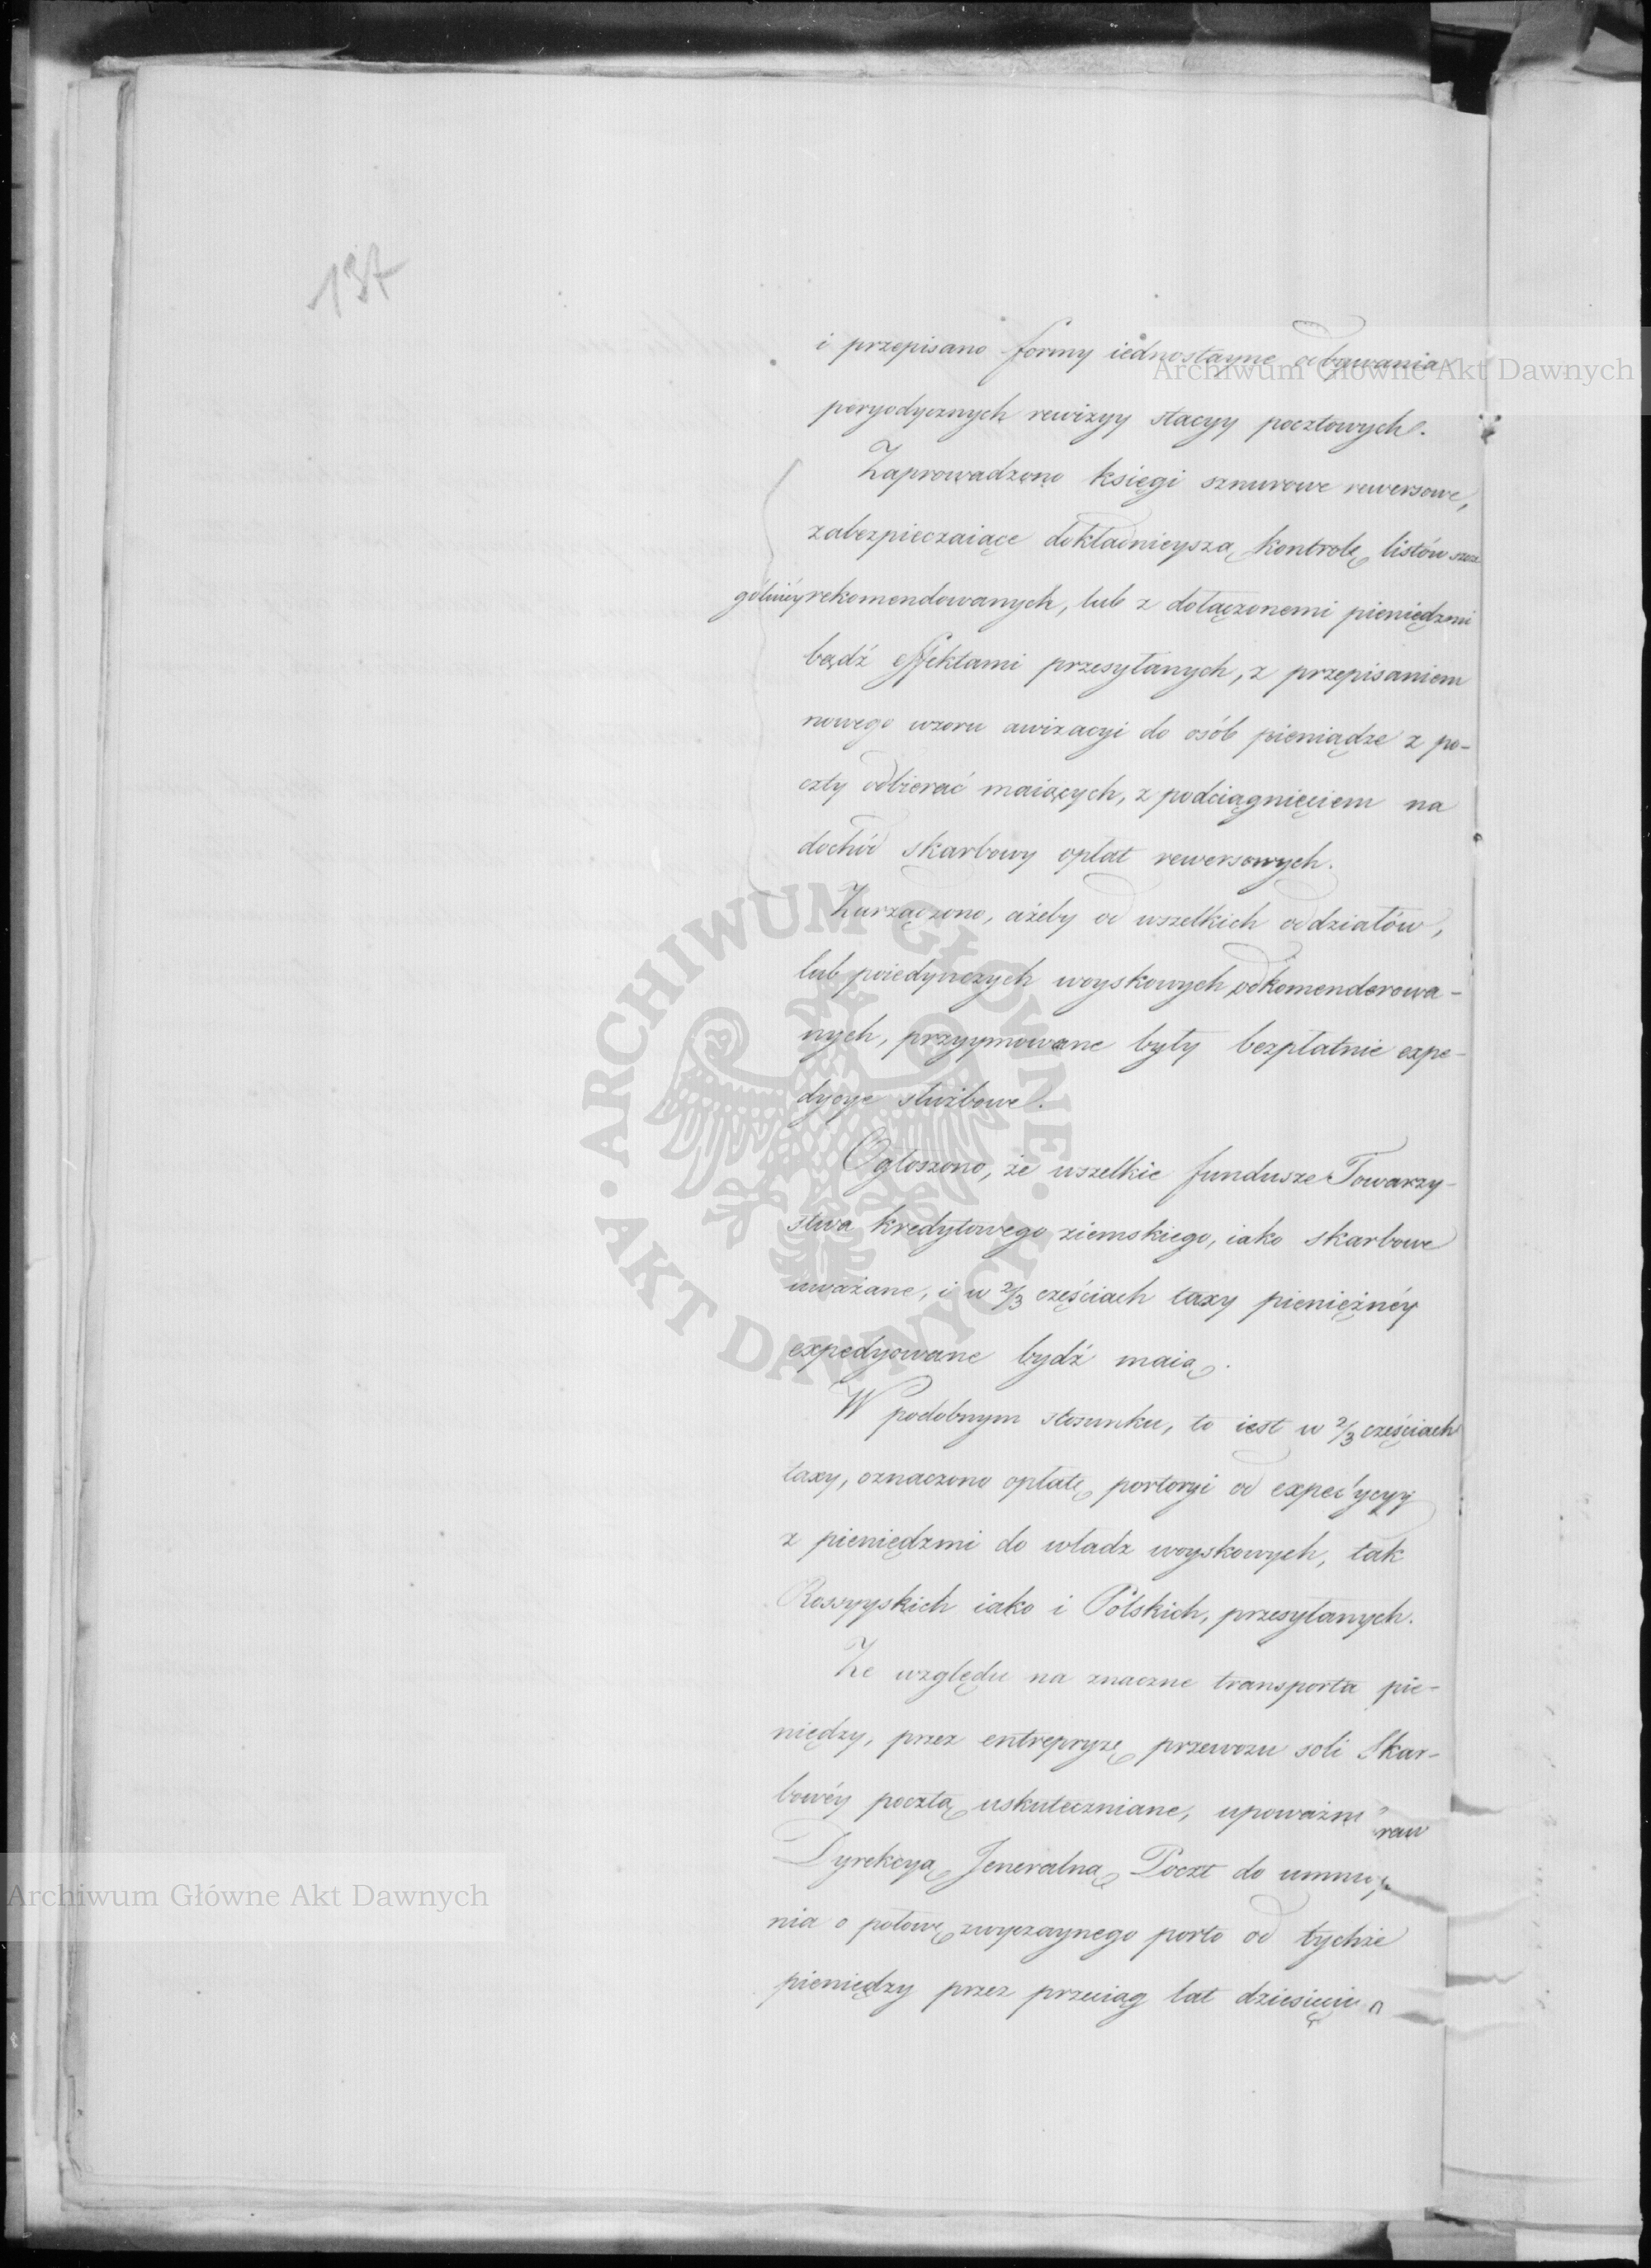 137
i przepisano formy iednostayne odbywania
peryodycznych rewizyy stacyy pocztowych.
Zaprowadzono księgi sznurowe rewersowe,
zabezpieczaiące dokładnieyszą kontrolę listów szcze
gólniéy rekomendowanych, lub z dołączonemi pieniędzmi
bądź effektami przesyłanych, z przepisaniem
nowego wzoru awizacyi do osób pieniądze z po-
czty odbierać maiących, z podciągnięciem na
dochód skarbowy opłat rewersowych.
Zarządzono, ażeby od wszelkich oddziałów,
lub poiedynczych woyskowych odkomenderowa-
nych, przyymowane były bezpłatnie expe-
dycye służbowe.
Ogłoszono, że wszelkie fundusze Towarzy-
stwa kredytowego ziemskiego, iako skarbowe
uważane, i w 2/3 częściach taxy pieniężnéy
expedyowane bydź maią.
W podobnym stosunku, to iest w 2/3 częściach
taxy, oznaczono opłatę portoryi od expedycyy
z pieniędzmi do władz woyskowych, tak
Rossyyskich iako i Polskich, przesyłanych.
Ze względu na znaczne transporta pie-
niędzy, przez entrepryzę przewozu soli Skar-
bowéy pocztą uskuteczniane, upoważni
Dyrekcyą Jeneralną Poczt do
nia o połowę zwyczaynego porto od tychże
pieniędzy przez przeciąg lat dziesięciu
Archiwum Główne Akt Dawnych
ARCHIWUM GŁÓWNE · AKT DAWNYCH ·
Archiwum Główne Akt Dawnych